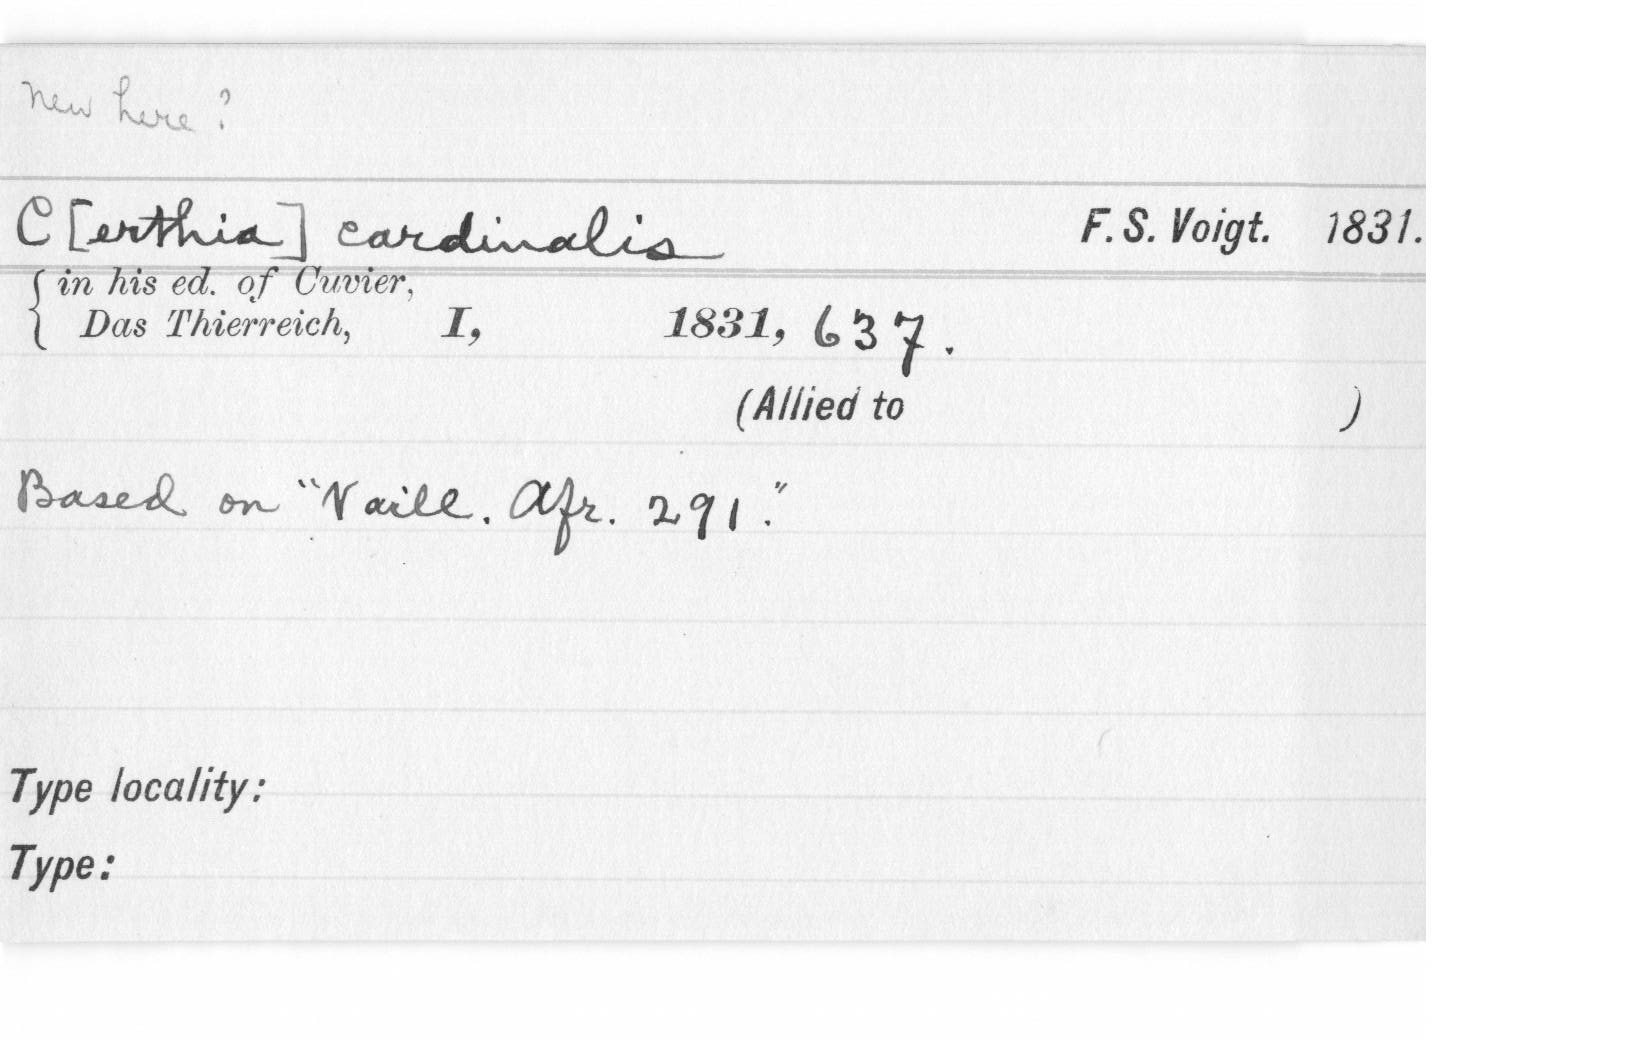 New here?
C[erthia] cardinalis F. S. Voigt. 1831.
in his ed. of Cuvier,
Das Thierreich, I, 1831, 637.
(Allied to )
Based on "Vaill. Afr. 291."
Type locality:
Type: